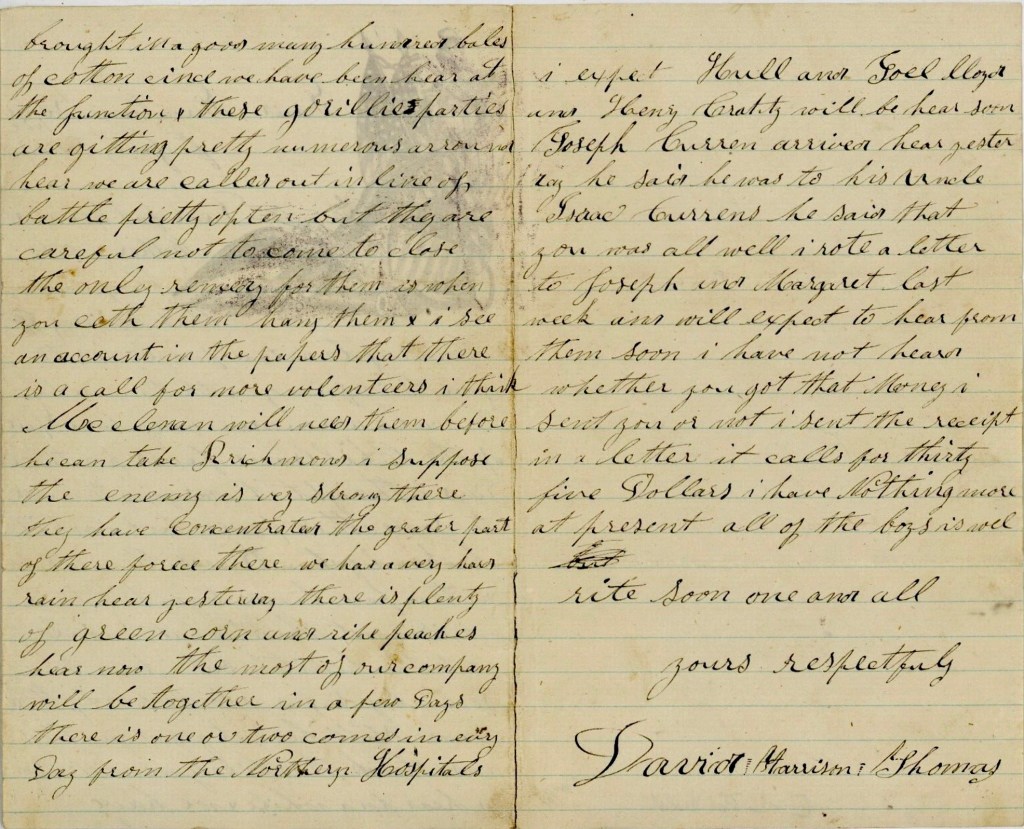 brought in a good many hundred bales
of cotton cince we have been hear at
the function & these gorillies parties
are gitting pretty numerous arround
hear we are called out in line of
battle pretty opten but they are
careful not to come to close
the only remedy for them is when
you coth them hang them & i see
an account in the papers that there
is a call for more volenteers i think
Mcclenan will need them before
he can take Richmond i suppose
the enemy is vey strong there
they have Concentrated the grater part
of there force there we had a very hard
rain hear yesterday there is plenty
of green corn and ripe peaches
hear now the most of our company
will be together in a few Days
there is one or two comes in evry
Day from the Northern Hospitals
i expect Hull and Joel lloyd
and Henry Cratty will be hear soon
Joseph Curren arrived hear yester
day he said he was to his Uncle
Isaac Currens he said that
you was all well i rote a letter
to Joseph and Margaret last
week and will expect to hear from
them soon i have not heard
whether you got that Money i
sent you or not i sent the receipt
in a letter it calls for thirty
five Dollars i have Nothing more
at present all of the boys is wel
but
rite soon one and all
yours respectfuly
David Harrison Thomas